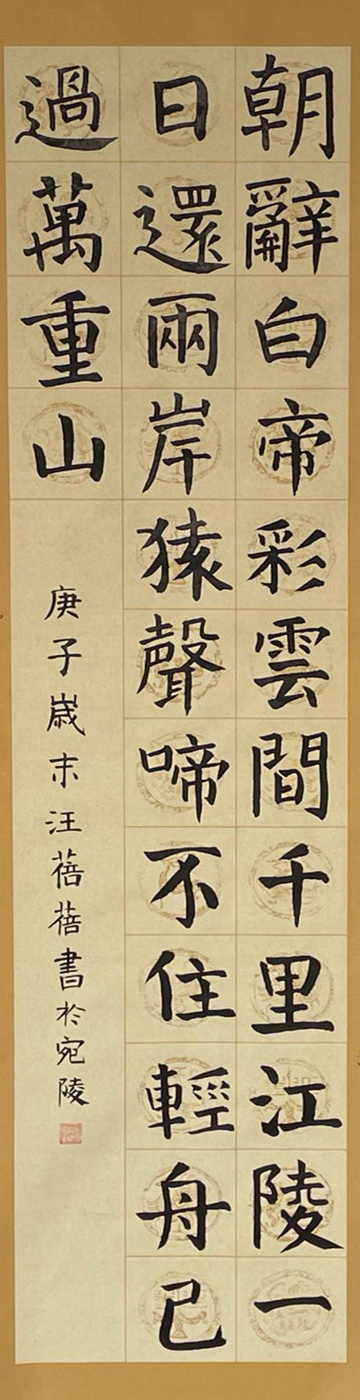 朝辭白帝彩雲間千里江陵一
日還兩岸猿聲啼不住輕舟已
過萬重山
庚子歲末汪蓓蓓書於宛陵